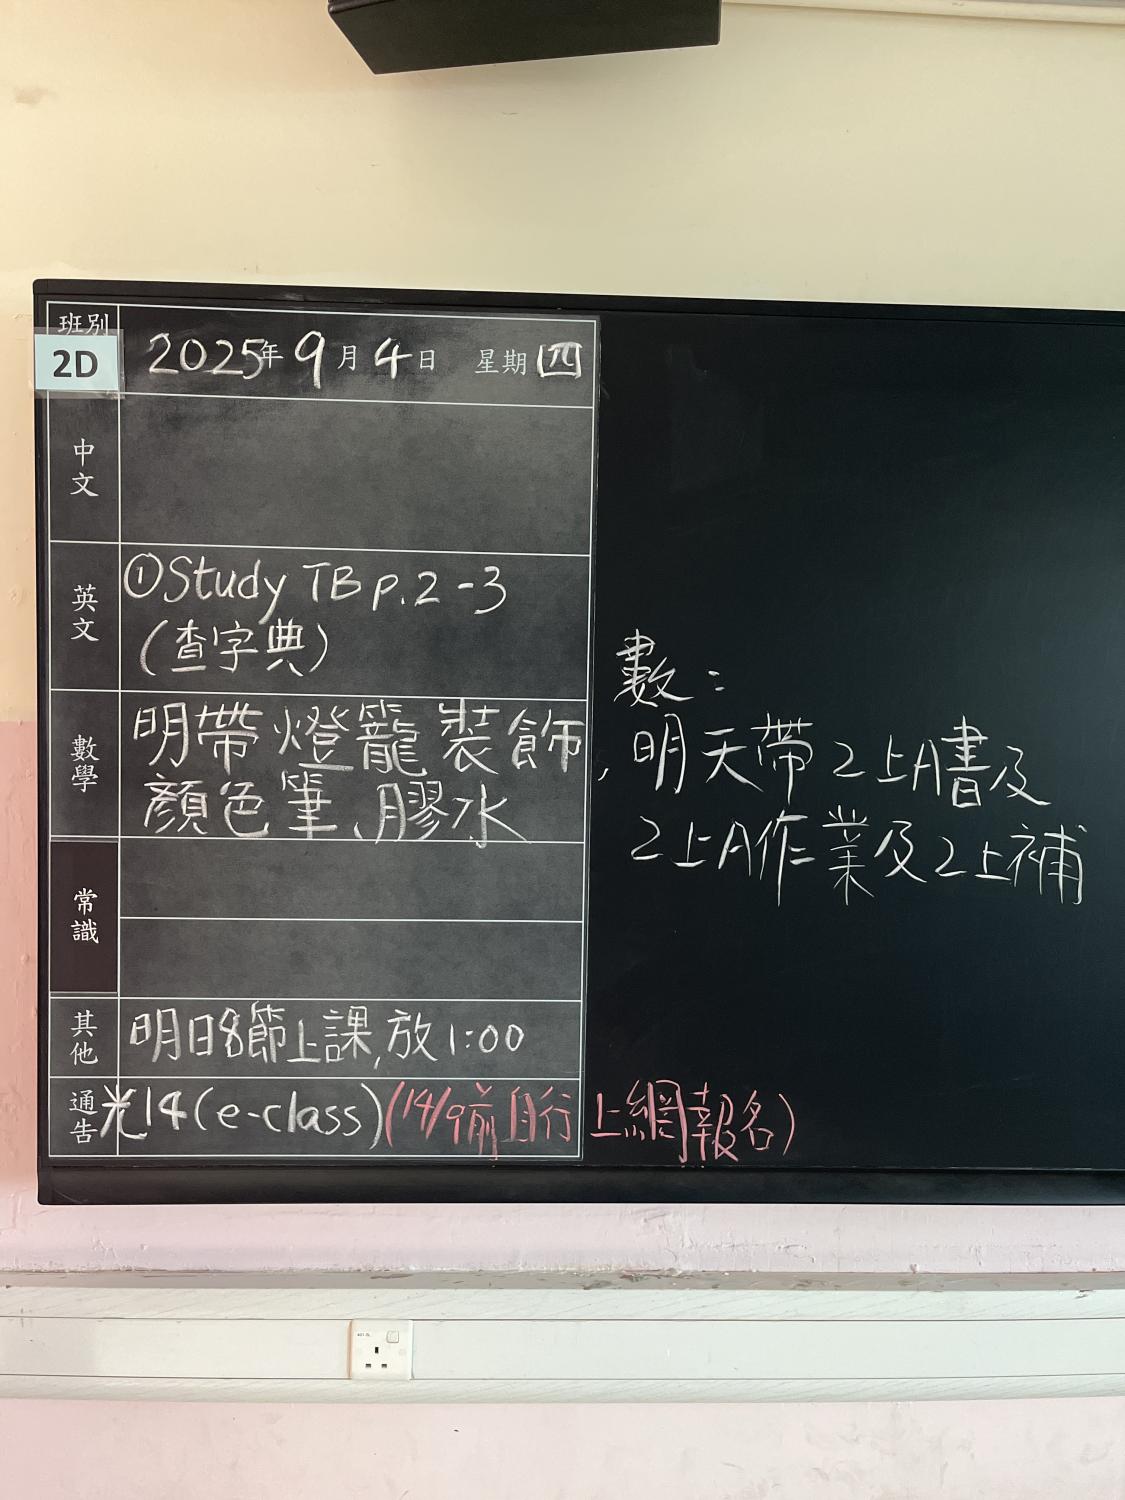 班別
2D
2025年9月4日 星期四
中文
英文
①Study TB p.2-3
(查字典)
數學
明帶燈籠裝飾,
顏色筆、膠水
數:
明天帶2上A書及
2上A作業及2上補
常識
其他
明日8節上課,放1:00
通告
光14(e-class)(14/9前自行上網報名)